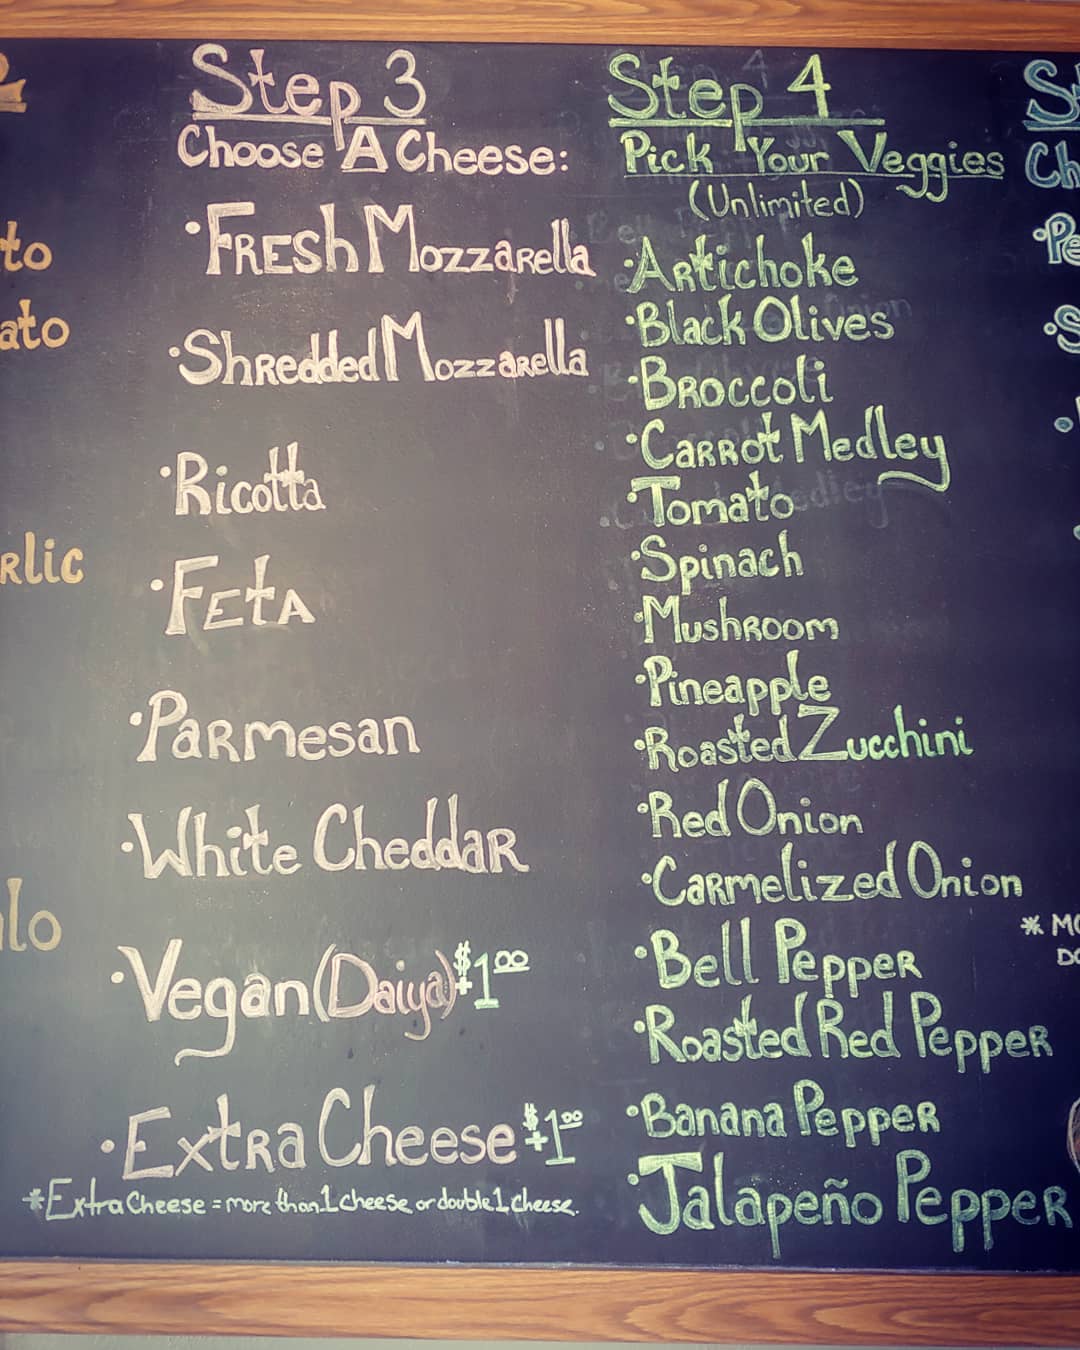 Step 3
Choose A Cheese:
• Fresh Mozzarella
• Shredded Mozzarella
• Ricotta
• Feta
• Parmesan
• White Cheddar
• Vegan (Daiya) +$1.00
• Extra Cheese +$1.00
*Extra Cheese = more than 1 cheese or double 1 cheese.
Step 4
Pick Your Veggies
(Unlimited)
• Artichoke
• Black Olives
• Broccoli
• Carrot Medley
• Tomato
• Spinach
• Mushroom
• Pineapple
• Roasted Zucchini
• Red Onion
• Carmelized Onion
• Bell Pepper
• Roasted Red Pepper
• Banana Pepper
• Jalapeño Pepper